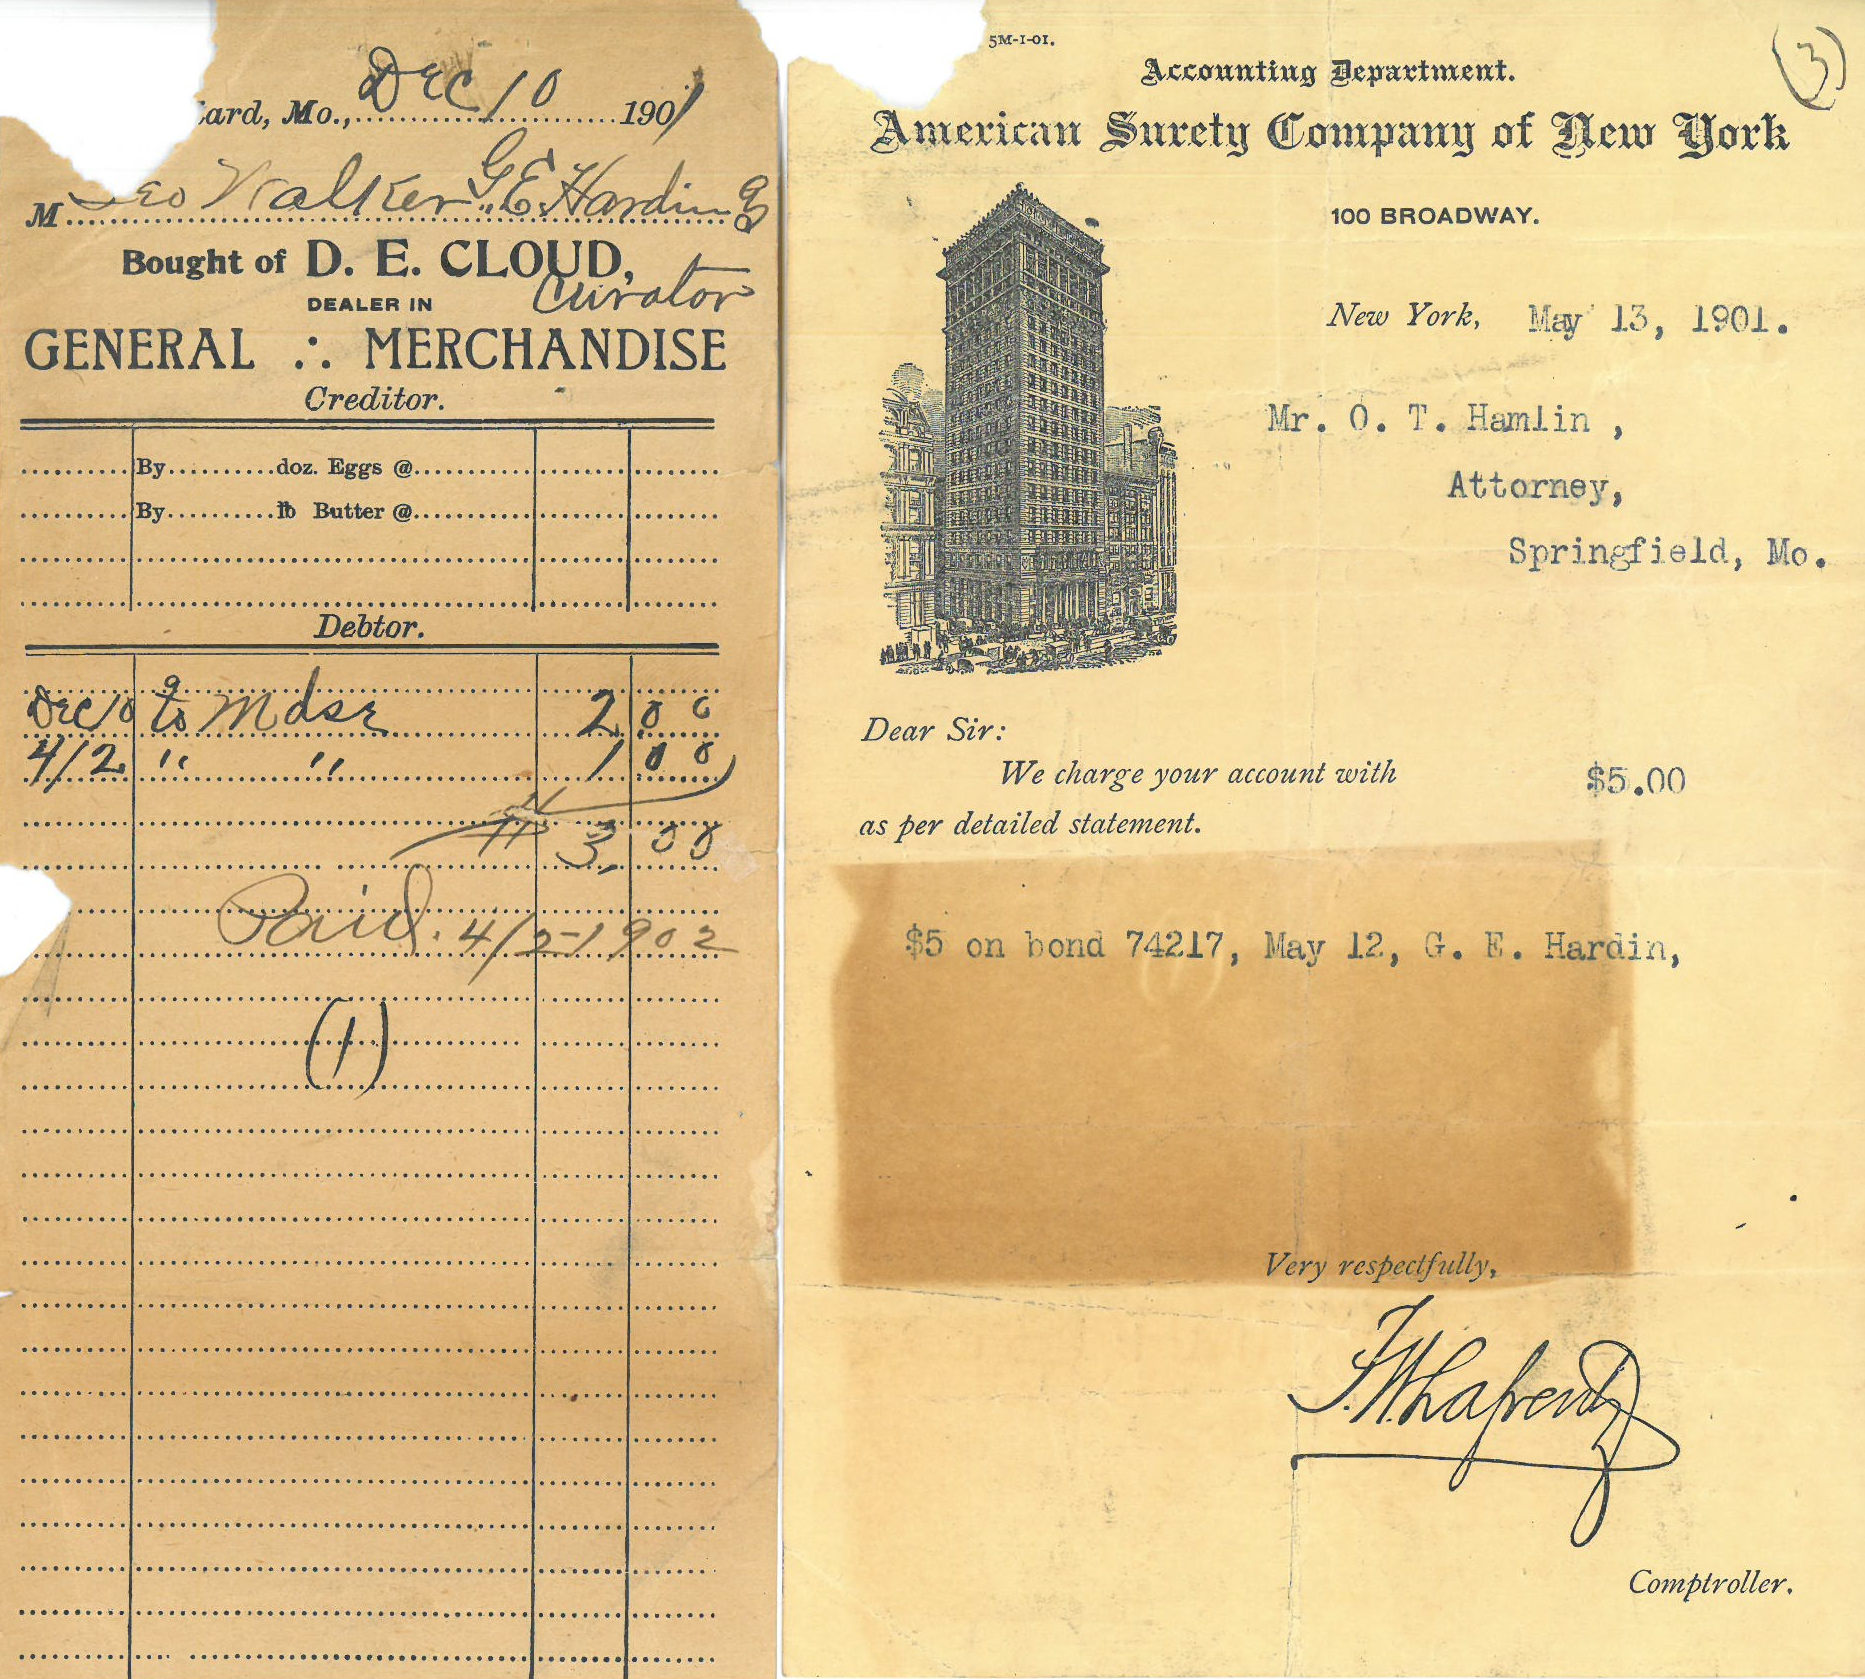 ard, Mo., Dec 10 1901
M Geo Walker G. E. Harding
Bought of D. E. CLOUD,
Curator
DEALER IN
GENERAL ∴ MERCHANDISE
Creditor.
By.......... doz. Eggs @
By.......... lb Butter @
Debtor.
Dec 10 to Mdse 2 00
4/2 " " 1 00
3,00
Paid. 4/2-1902
(1)
5M-1-01.
(3)
Accounting Department.
American Surety Company of New York
100 BROADWAY.
New York, May 13, 1901.
Mr. O. T. Hamlin ,
Attorney,
Springfield, Mo.
Dear Sir:
We charge your account with $5.00
as per detailed statement.
$5 on bond 74217, May 12, G. E. Hardin,
Very respectfully,
F. W. Lafrentz
Comptroller.